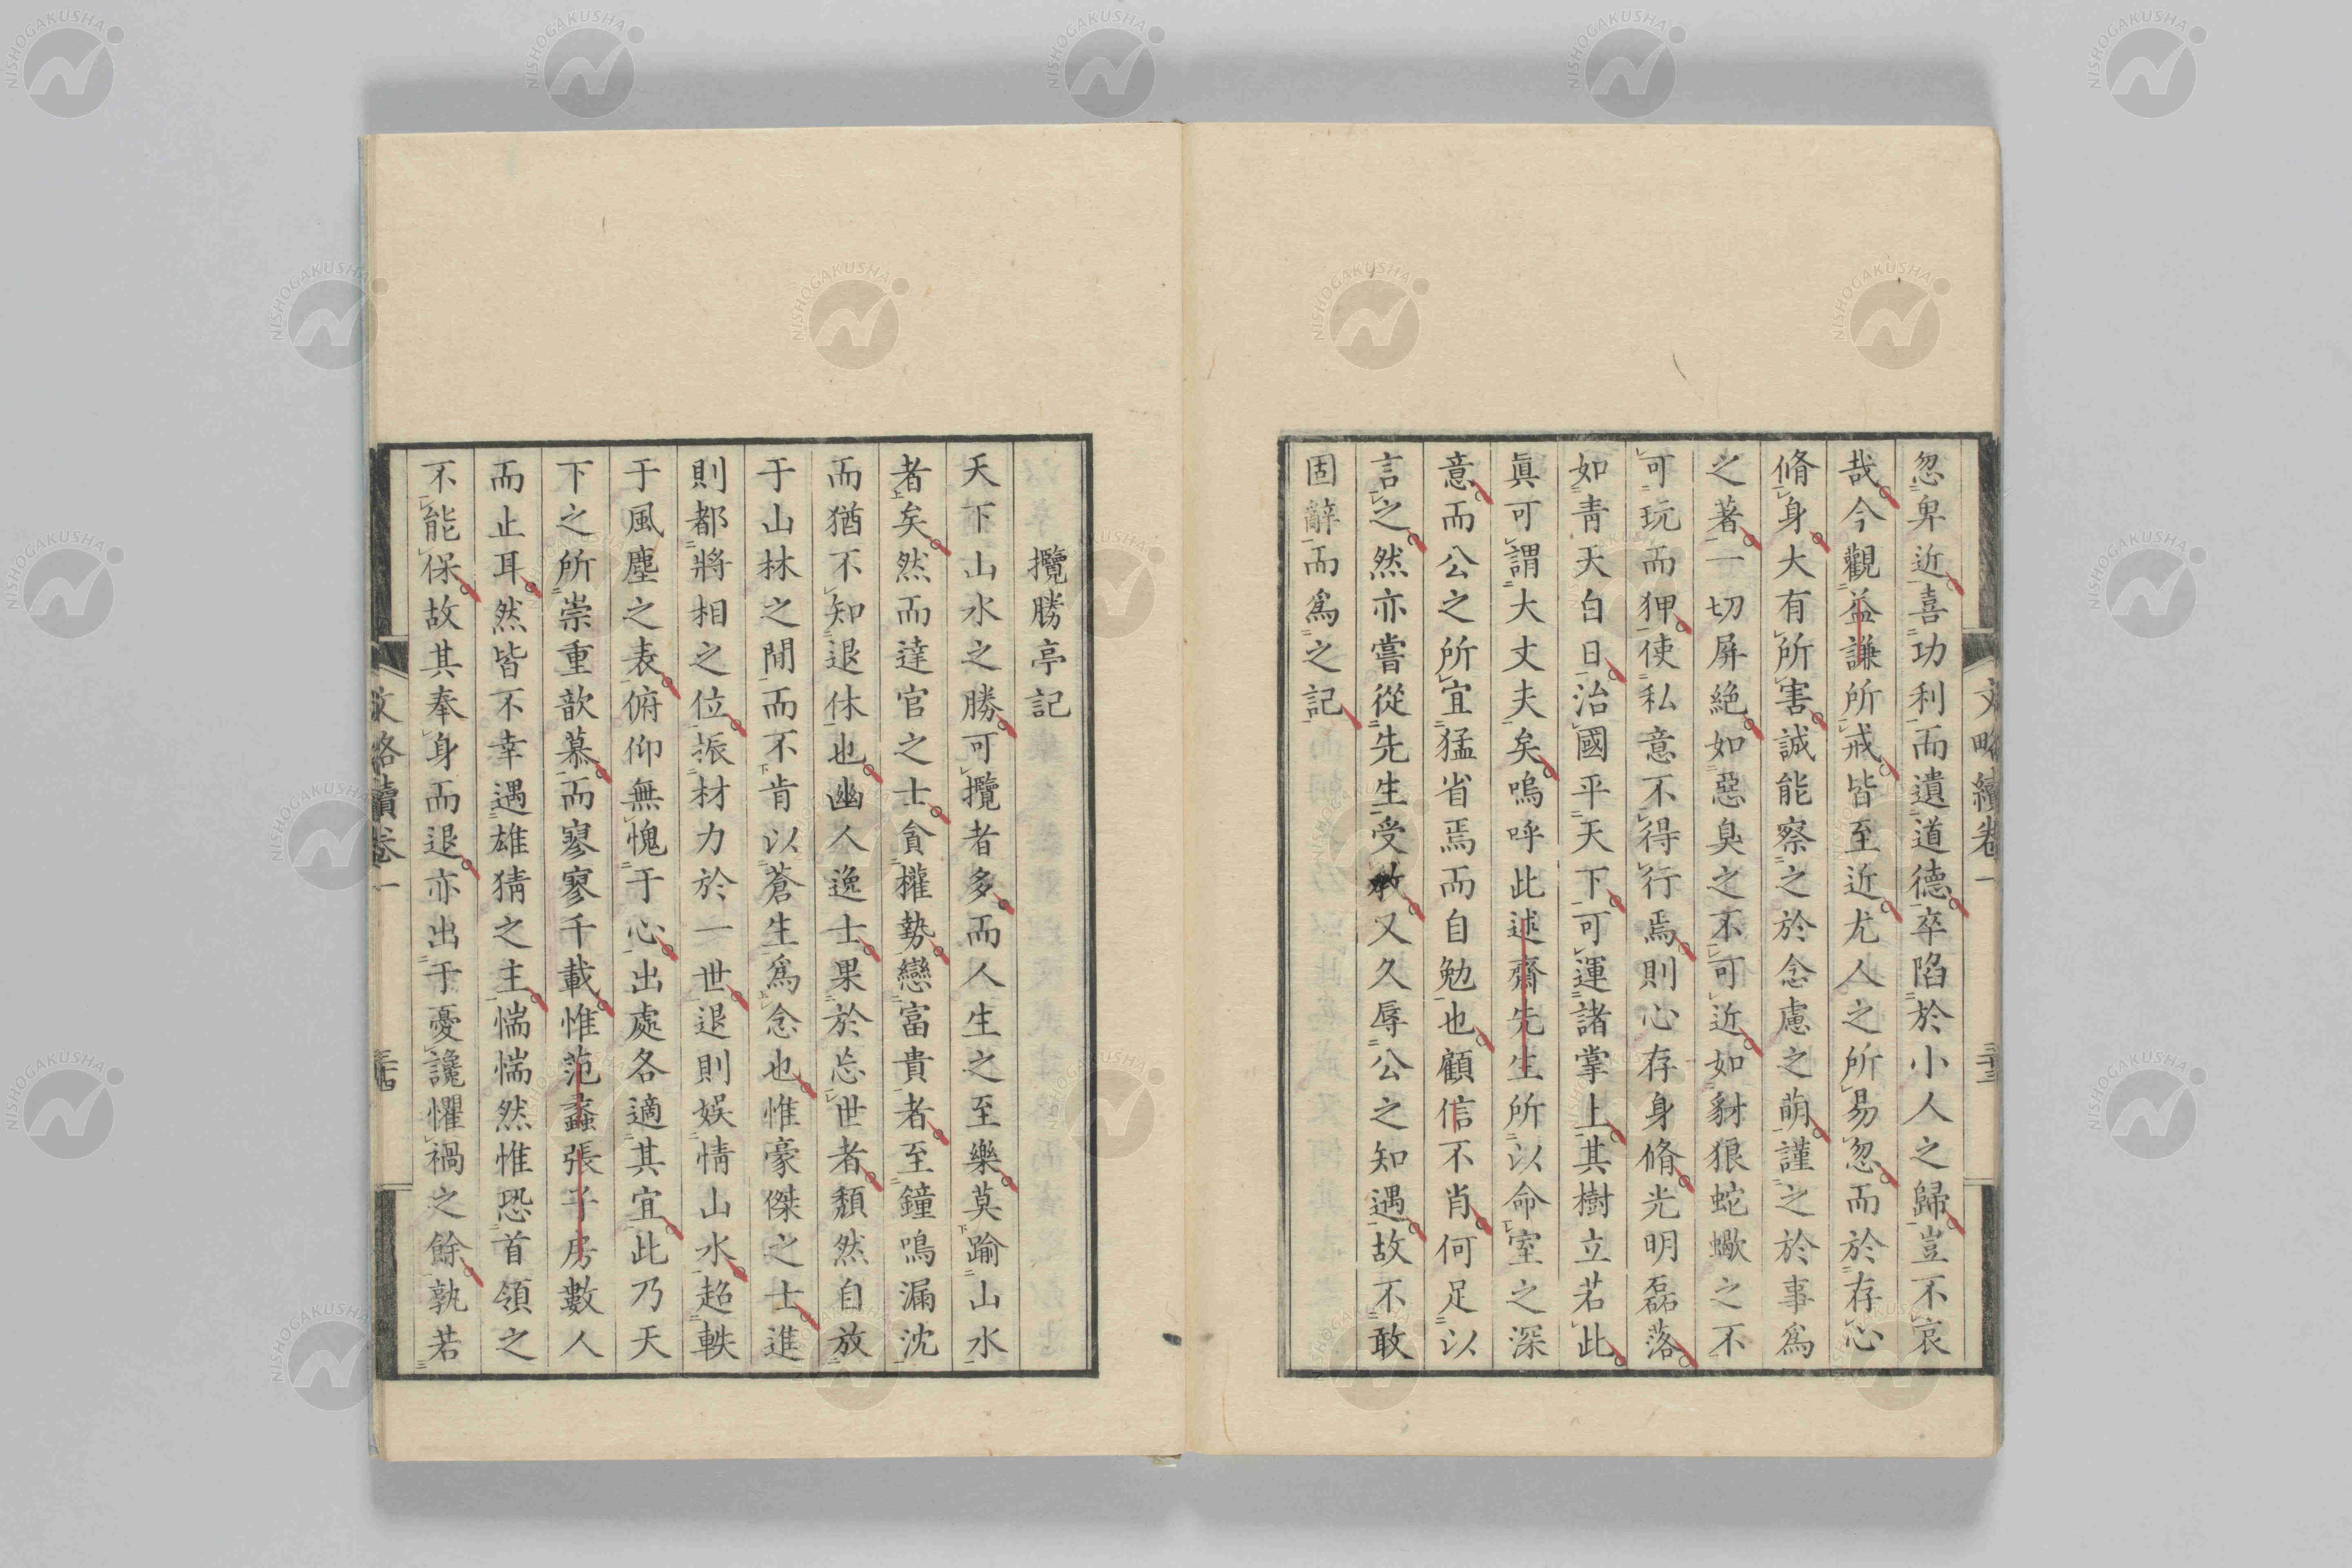 文略續卷一
三十三
忽卑近喜功利而遺道德卒陷於小人之歸豈不哀
哉今觀益謙所戒皆至近尤人之所易忽而於存心
脩身大有所害誠能察之於念慮之萌謹之於事爲
之著一切屏絶如惡臭之不可近如豺狼蛇蠍之不
可玩而狎使私意不得行焉則心存身脩光明磊落
如靑天白日治國平天下可運諸掌上其樹立若此
眞可謂大丈夫矣嗚呼此述齋先生所以命室之深
意而公之所宜猛省焉而自勉也顧信不肖何足以
言之然亦嘗從先生受敎又久辱公之知遇故不敢
固辭而爲之記
攬勝亭記
天下山水之勝可攬者多而人生之至樂莫踰山水
者矣然而達官之士貪權勢戀富貴者至鐘鳴漏沈
而猶不知退休也幽人逸士果於忘世者頽然自放
于山林之閒而不肯以蒼生爲念也惟豪傑之士進
則都將相之位振材力於一世退則娛情山水超軼
于風塵之表俯仰無愧于心出處各適其宜此乃天
下之所崇重歆慕而寥寥千載惟范蠡張子房數人
而止耳然皆不幸遇雄猜之主惴惴然惟恐首領之
不能保故其奉身而退亦出于憂讒懼禍之餘孰若
文略續卷一